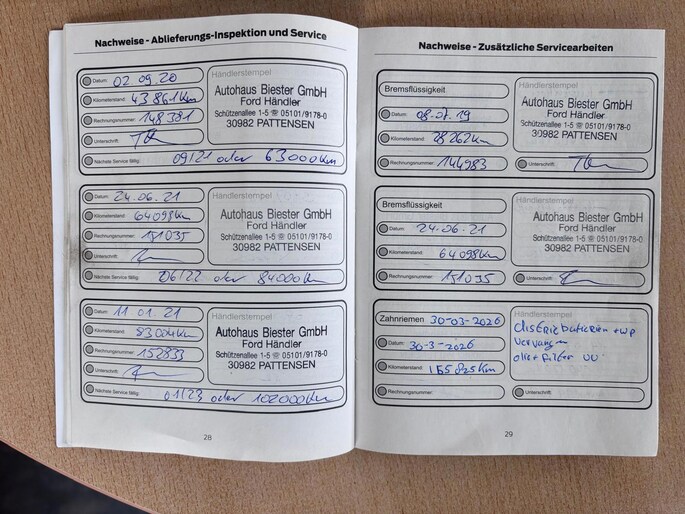 Nachweise - Ablieferungs-Inspektion und Service
Datum: 02.09.20
Kilometerstand: 43861Km
Rechnungsnummer: 148381
Unterschrift:
Nächste Service fällig: 09/21 oder 63000Km
Händlerstempel
Autohaus Biester GmbH
Ford Händler
Schützenallee 1-5 ☎ 05101/9178-0
30982 PATTENSEN
Datum: 24.06.21
Kilometerstand: 64098Km
Rechnungsnummer: 151035
Unterschrift:
Nächste Service fällig: 06/22 oder 84000Km
Händlerstempel
Autohaus Biester GmbH
Ford Händler
Schützenallee 1-5 ☎ 05101/9178-0
30982 PATTENSEN
Datum: 11.01.21
Kilometerstand: 83004Km
Rechnungsnummer: 152833
Unterschrift:
Nächste Service fällig: 01/23 oder 102000Km
Händlerstempel
Autohaus Biester GmbH
Ford Händler
Schützenallee 1-5 ☎ 05101/9178-0
30982 PATTENSEN
28
Nachweise - Zusätzliche Servicearbeiten
Bremsflüssigkeit
Datum: 08.07.19
Kilometerstand: 28262Km
Rechnungsnummer: 144983
Händlerstempel
Autohaus Biester GmbH
Ford Händler
Schützenallee 1-5 ☎ 05101/9178-0
30982 PATTENSEN
Unterschrift:
Bremsflüssigkeit
Datum: 24.06.21
Kilometerstand: 64098Km
Rechnungsnummer: 151035
Händlerstempel
Autohaus Biester GmbH
Ford Händler
Schützenallee 1-5 ☎ 05101/9178-0
30982 PATTENSEN
Unterschrift:
Zahnriemen 30-03-2026
Datum: 30-3-2026
Kilometerstand: 165825Km
Rechnungsnummer:
Händlerstempel
+wp
vervangen
olie+filter
Unterschrift:
29